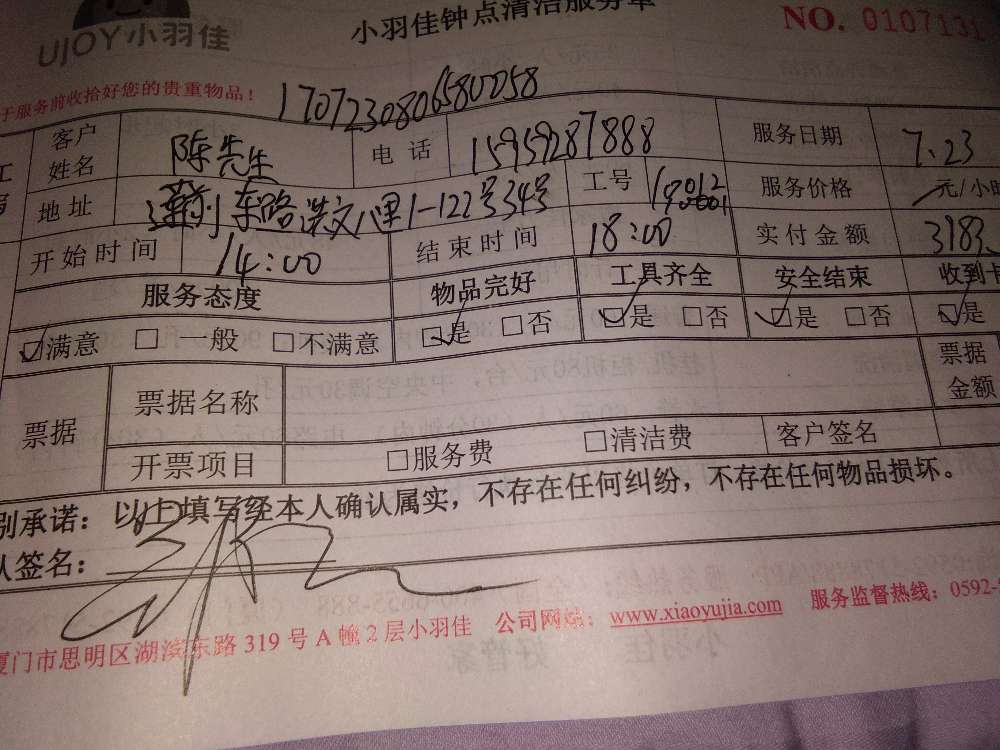 UJOY小羽佳
小羽佳钟点清洁服务单
NO. 0107131
于服务前收拾好您的贵重物品!
1707230806580058
客户姓名 陈先生 电话 15959287888 服务日期 7.23
地址 东路 1-122号34号 工号 服务价格 元/小时
开始时间 14:00 结束时间 18:00 实付金额 3183
服务态度 物品完好 工具齐全 安全结束 收到卡
☑满意 □一般 □不满意 ☑是 □否 ☑是 □否 ☑是 □否 ☑是
票据 票据名称 票据金额
开票项目 □服务费 □清洁费 客户签名
别承诺:以上填写经本人确认属实,不存在任何纠纷,不存在任何物品损坏。
人签名:
厦门市思明区湖滨东路319号A幢2层小羽佳 公司网站:www.xiaoyujia.com 服务监督热线:0592-